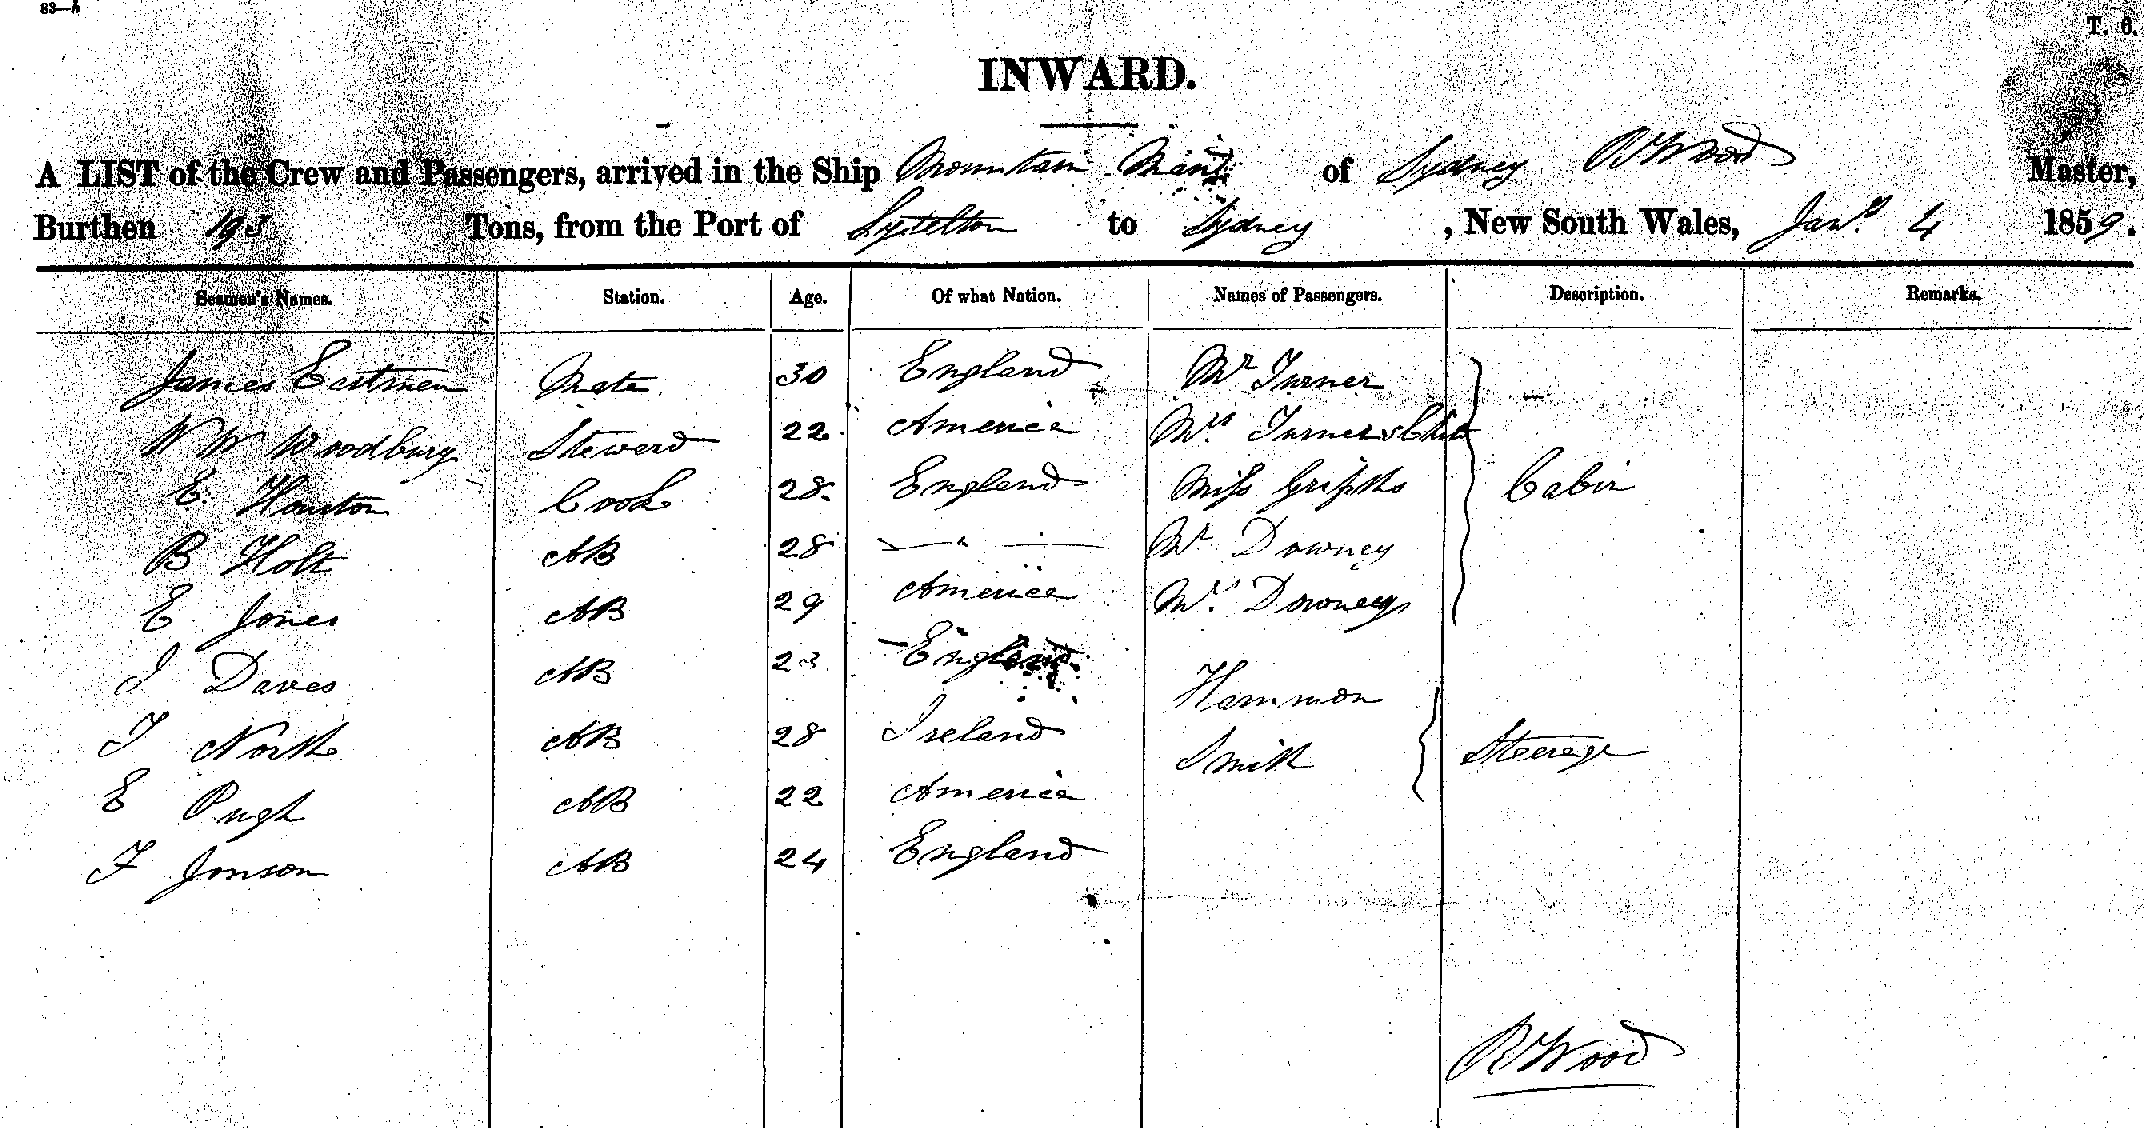 83—A
T. 6.
INWARD.
A LIST of the Crew and Passengers, arrived in the Ship Mountain Maid of Sydney B Wood Master,
Burthen 193 Tons, from the Port of Lyttelton to Sydney, New South Wales, Jany. 4 1859.
Seamen's Names. Station. Age. Of what Nation. Names of Passengers. Description. Remarks.
James Eastman Mate 30 England Mr Turner
N W Woodbury Steward 22 America Mrs Turner & Child
E. Houston Cook 28 England Miss Griffiths Cabin
B Holt AB 28 — " — Mr Downey
E Jones AB 29 America Mrs Downey
J Daves AB 23 England Hammon
T North AB 28 Ireland Smith Steerage
E Pugh AB 22 America
F Jonson AB 24 England
B Wood